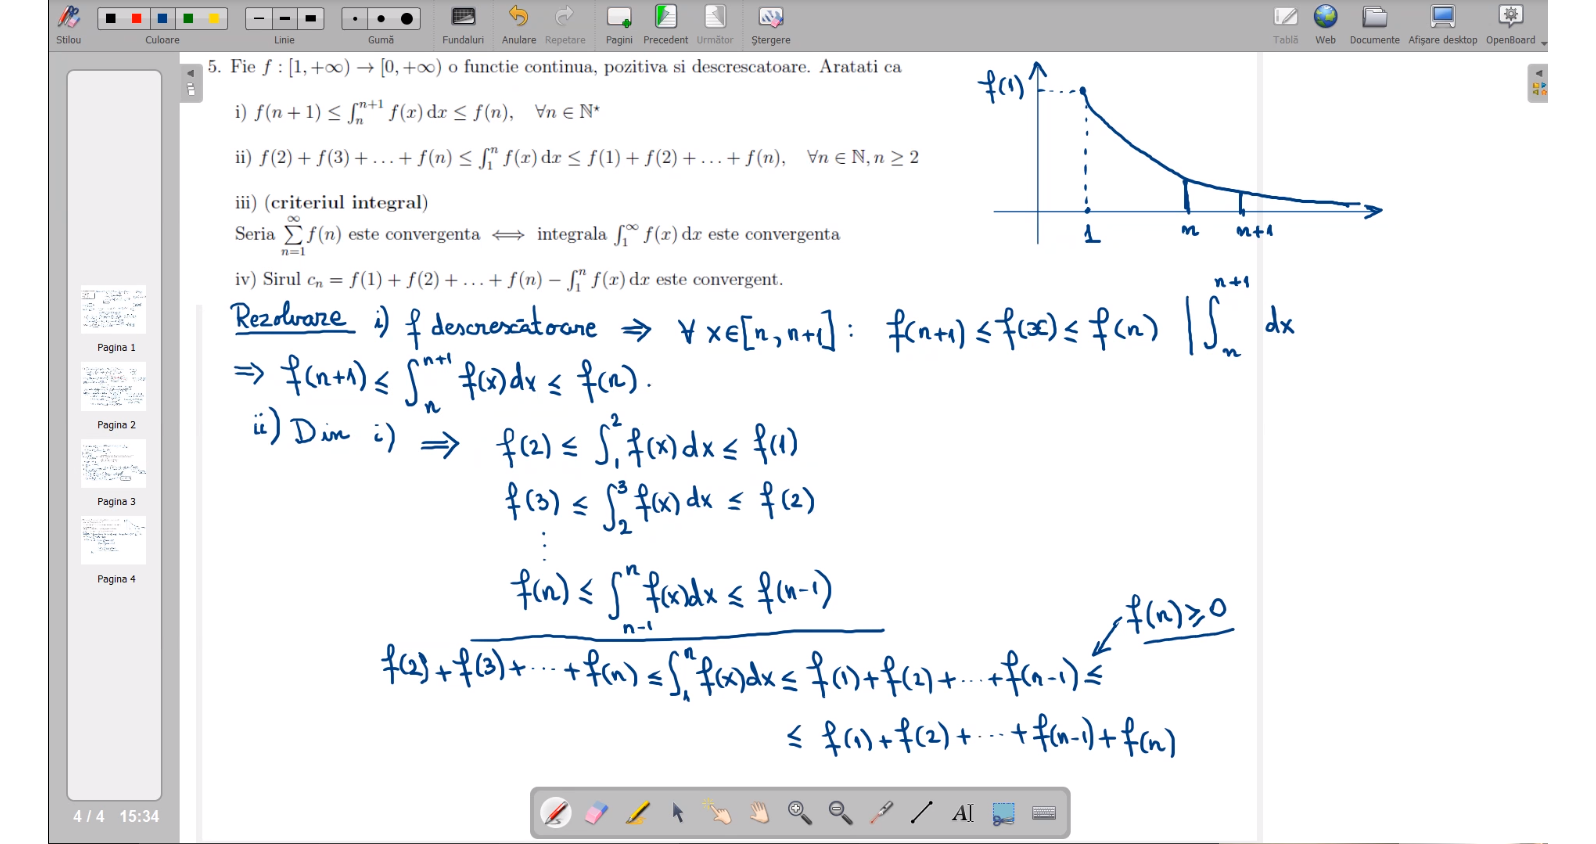 Stilou Culoare Linie Gumă Fundaluri Anulare Repetare Pagini Precedent Următor Ștergere Tablă Web Documente Afișare desktop OpenBoard
5. Fie f : [1, +∞) → [0, +∞) o functie continua, pozitiva si descrescatoare. Aratati ca
i) f(n + 1) ≤ ∫_n^{n+1} f(x) dx ≤ f(n), ∀n ∈ ℕ*
ii) f(2) + f(3) + … + f(n) ≤ ∫_1^n f(x) dx ≤ f(1) + f(2) + … + f(n), ∀n ∈ ℕ, n ≥ 2
iii) (criteriul integral)
Seria ∑_{n=1}^∞ f(n) este convergenta ⟺ integrala ∫_1^∞ f(x) dx este convergenta
iv) Sirul c_n = f(1) + f(2) + … + f(n) − ∫_1^n f(x) dx este convergent.
f(1)
1 n n+1
Rezolvare i) f descrescătoare ⇒ ∀ x∈[n, n+1] : f(n+1) ≤ f(x) ≤ f(n) | ∫_n^{n+1} dx
⇒ f(n+1) ≤ ∫_n^{n+1} f(x)dx ≤ f(n).
ii) Din i) ⇒ f(2) ≤ ∫_1^2 f(x)dx ≤ f(1)
f(3) ≤ ∫_2^3 f(x)dx ≤ f(2)
⋮
f(n) ≤ ∫_{n-1}^n f(x)dx ≤ f(n-1)
f(n) ≥ 0
f(2)+f(3)+…+f(n) ≤ ∫_1^n f(x)dx ≤ f(1)+f(2)+…+f(n-1) ≤
≤ f(1)+f(2)+…+f(n-1)+f(n)
Pagina 1
Pagina 2
Pagina 3
Pagina 4
4 / 4 15:34
AI